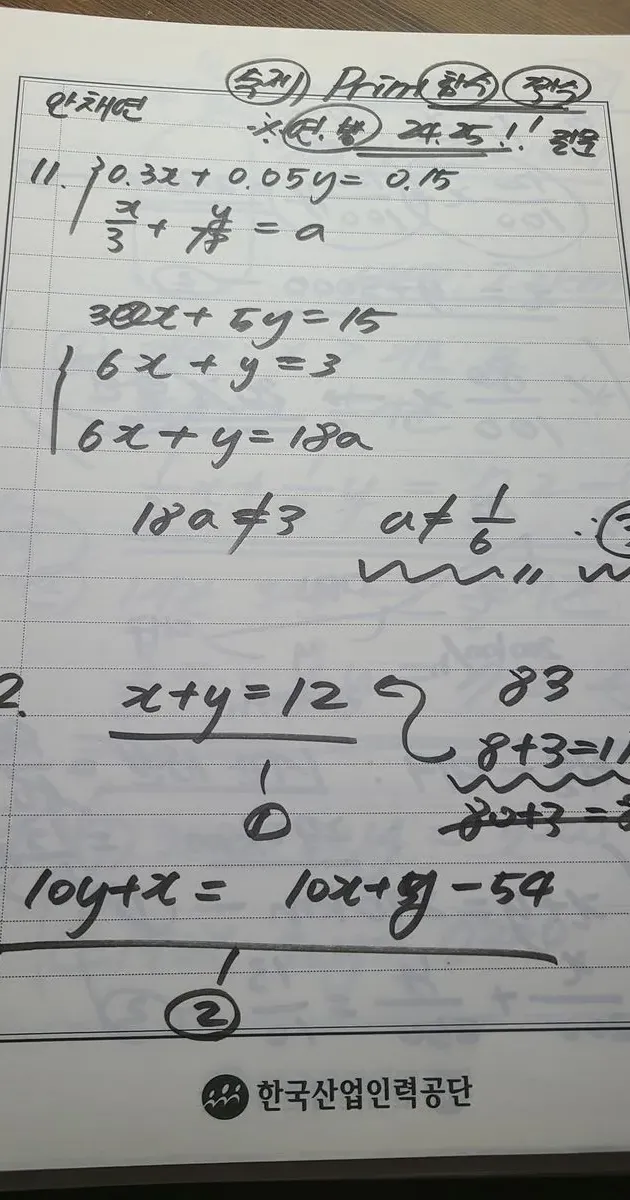 안채연
숙제) Prim 함수 점수
※ 연.방 24.25!! 질문
11. 0.3x + 0.05y = 0.15
x/3 + y/ = a
30x + 5y = 15
6x + y = 3
6x + y = 18a
18a ≠ 3 a ≠ 1/6 ∴
2. x+y = 12 83
8+3=11
①
80+3 =
10y+x = 10x+y - 54
②
한국산업인력공단